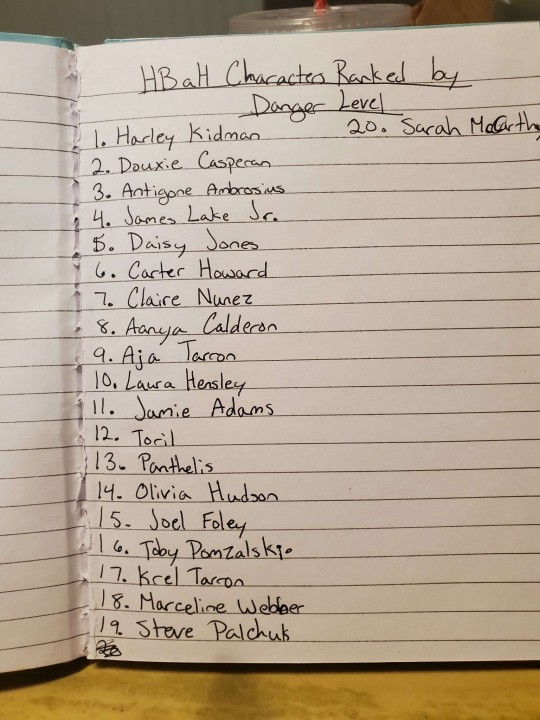 HBaH Characters Ranked by
Danger Level
1. Harley Kidman
2. Douxie Casperan
3. Antigone Ambrosius
4. James Lake Jr.
5. Daisy Jones
6. Carter Howard
7. Claire Nunez
8. Aanya Calderon
9. Aja Tarron
10. Laura Hensley
11. Jamie Adams
12. Toril
13. Panthelis
14. Olivia Hudson
15. Joel Foley
16. Toby Domzalski
17. Krel Tarron
18. Marceline Webber
19. Steve Palchuk
20. Sarah McCarthy